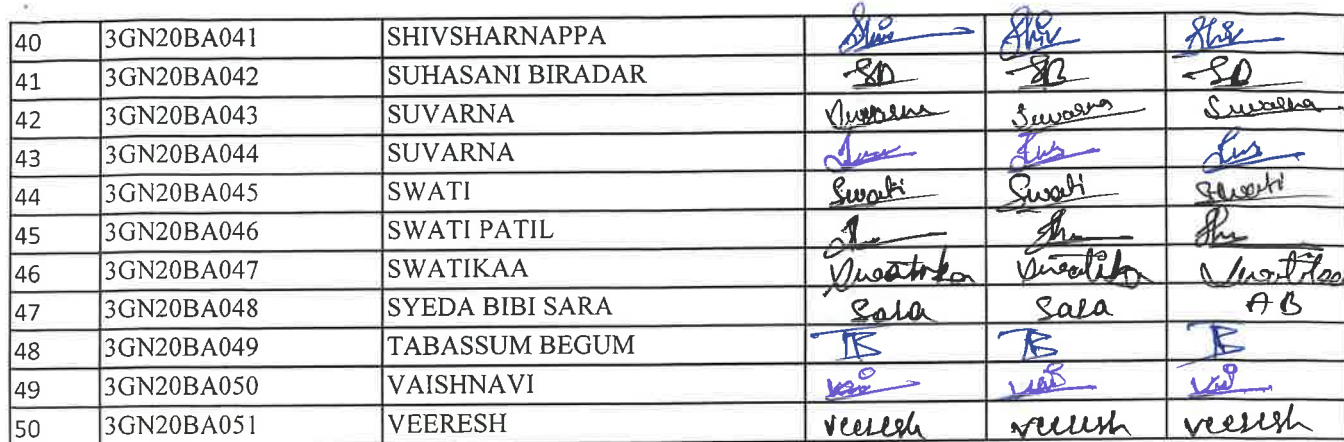 40 3GN20BA041 SHIVSHARNAPPA Shiv Shiv Shiv
41 3GN20BA042 SUHASANI BIRADAR SB SB SB
42 3GN20BA043 SUVARNA Suvarna Suvarna Suvarna
43 3GN20BA044 SUVARNA
44 3GN20BA045 SWATI Swati Swati Swati
45 3GN20BA046 SWATI PATIL
46 3GN20BA047 SWATIKAA
47 3GN20BA048 SYEDA BIBI SARA Sara Sara AB
48 3GN20BA049 TABASSUM BEGUM TB TB TB
49 3GN20BA050 VAISHNAVI Vai Vai Vai
50 3GN20BA051 VEERESH veeresh veeresh veeresh